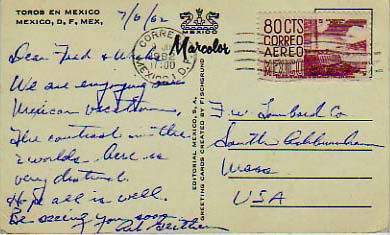 TOROS EN MEXICO
MEXICO, D, F, MEX,
7/6/62
MEXICO
Marcolor
CORRE
MEXICO 1 D.F.
80 CTS
CORREO
AEREO
MEXICO
Dear Fred &
We are enjoying our
Mexican vacation,
The contrast in the
2 worlds here is
very distinct.
Hope all is well.
Be seeing you soon
EDITORIAL MEXICO, S. A.
GREETING CARDS CREATED BY FISCHGRUND
F W Lombard Co.
South Ashburnham
Mass
USA